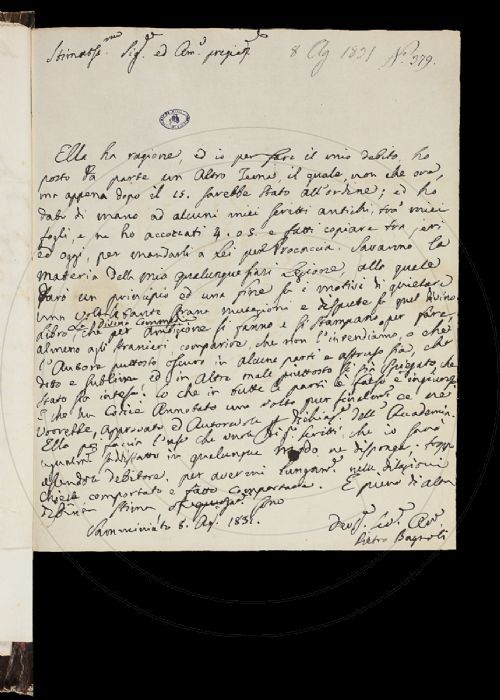 Stimatiss.mo Sig.r ed Am.o pregiat.o 8 Ag 1831 N.o 379.
Ella ha ragione, ed io per fare il mio debito, ho
posto da parte un altro Tema, il quale, non che ora,
ma appena dopo il 15. sarebbe stato all'ordine; ed ho
dato di mano ad alcuni miei scritti antichi, tra' miei
fogli, e ne ho accozzati 4. o 5. e fatti copiare tra jeri
ed oggi, per mandarli a Lei pel Procaccia. Saranno la
materia della mia qualunque siasi Lezione, alla quale
darò un principio ed una fine
una volta tante strane mutazioni e dispute sul Divino
La Divina Commedia
libro, che per ambizione si fanno e si stampano per
almeno agli stranieri comparire, che non l'intendiamo, o che
l'Autore piuttosto oscuro in alcune parti e astruso sia, che
dotto e sublime, ed in altre male piuttosto si sia spiegato, che
stato sia inteso. Lo che in tutte le parti è falso e ingiurioso
che un Codice Annotato una volta per finalmente ce ne
vorrebbe, approvato ed Autorevole dell'Accademia.
Ella poi faccia l'uso che vorrà di scritti, che io sarò
soddisfatto in qualunque modo ne disponga, troppo
essendole debitore, per avermi nella dilazione
chiesta comportato e fatto comportare. E pieno di
stima ossequiosa sono
Samminiato 6. Ag. 1831.
Dev.o Am.o
Pietro Bagnoli